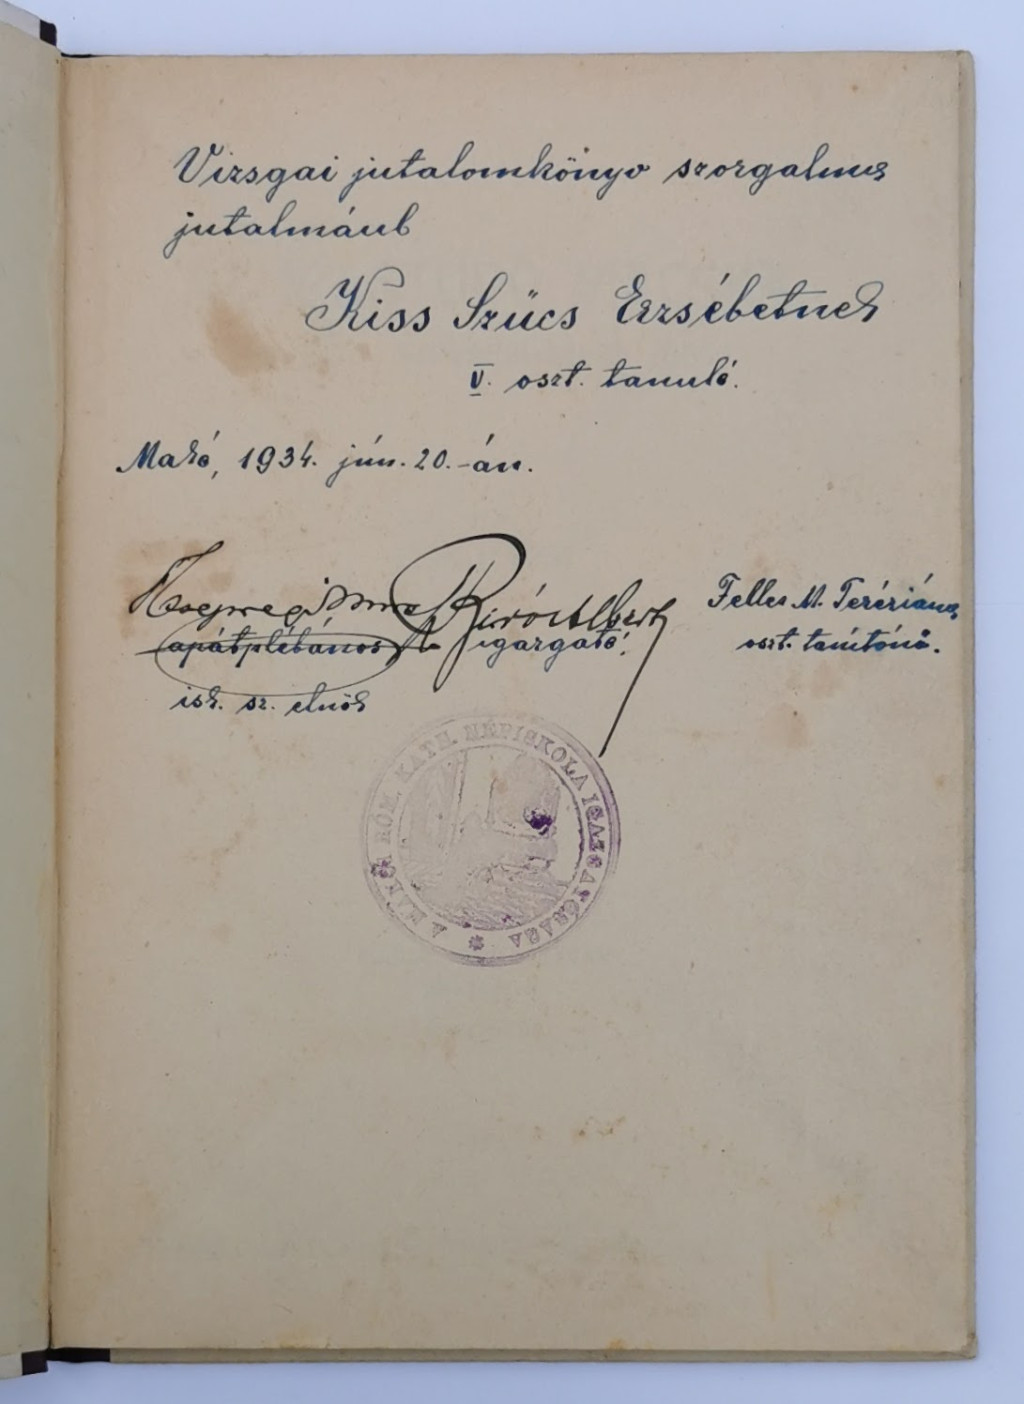 Vizsgai jutalomkönyv szorgalma
jutalmául
Kiss Szücs Erzsébetnek
V. oszt. tanuló.
Makó, 1934. jún. 20.-án.
Bíró Albert
Feller M. Terériána
apátplébános
igazgató.
oszt. tanítónő.
isk. sz. elnök
A MAKÓI RÓM. KATH. NÉPISKOLA IGAZGATÓSÁGA